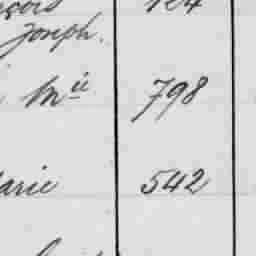 Joseph.
Mie 798
Marie 542